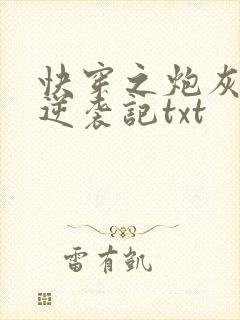 快穿之炮灰
逆袭記txt
雷有凯